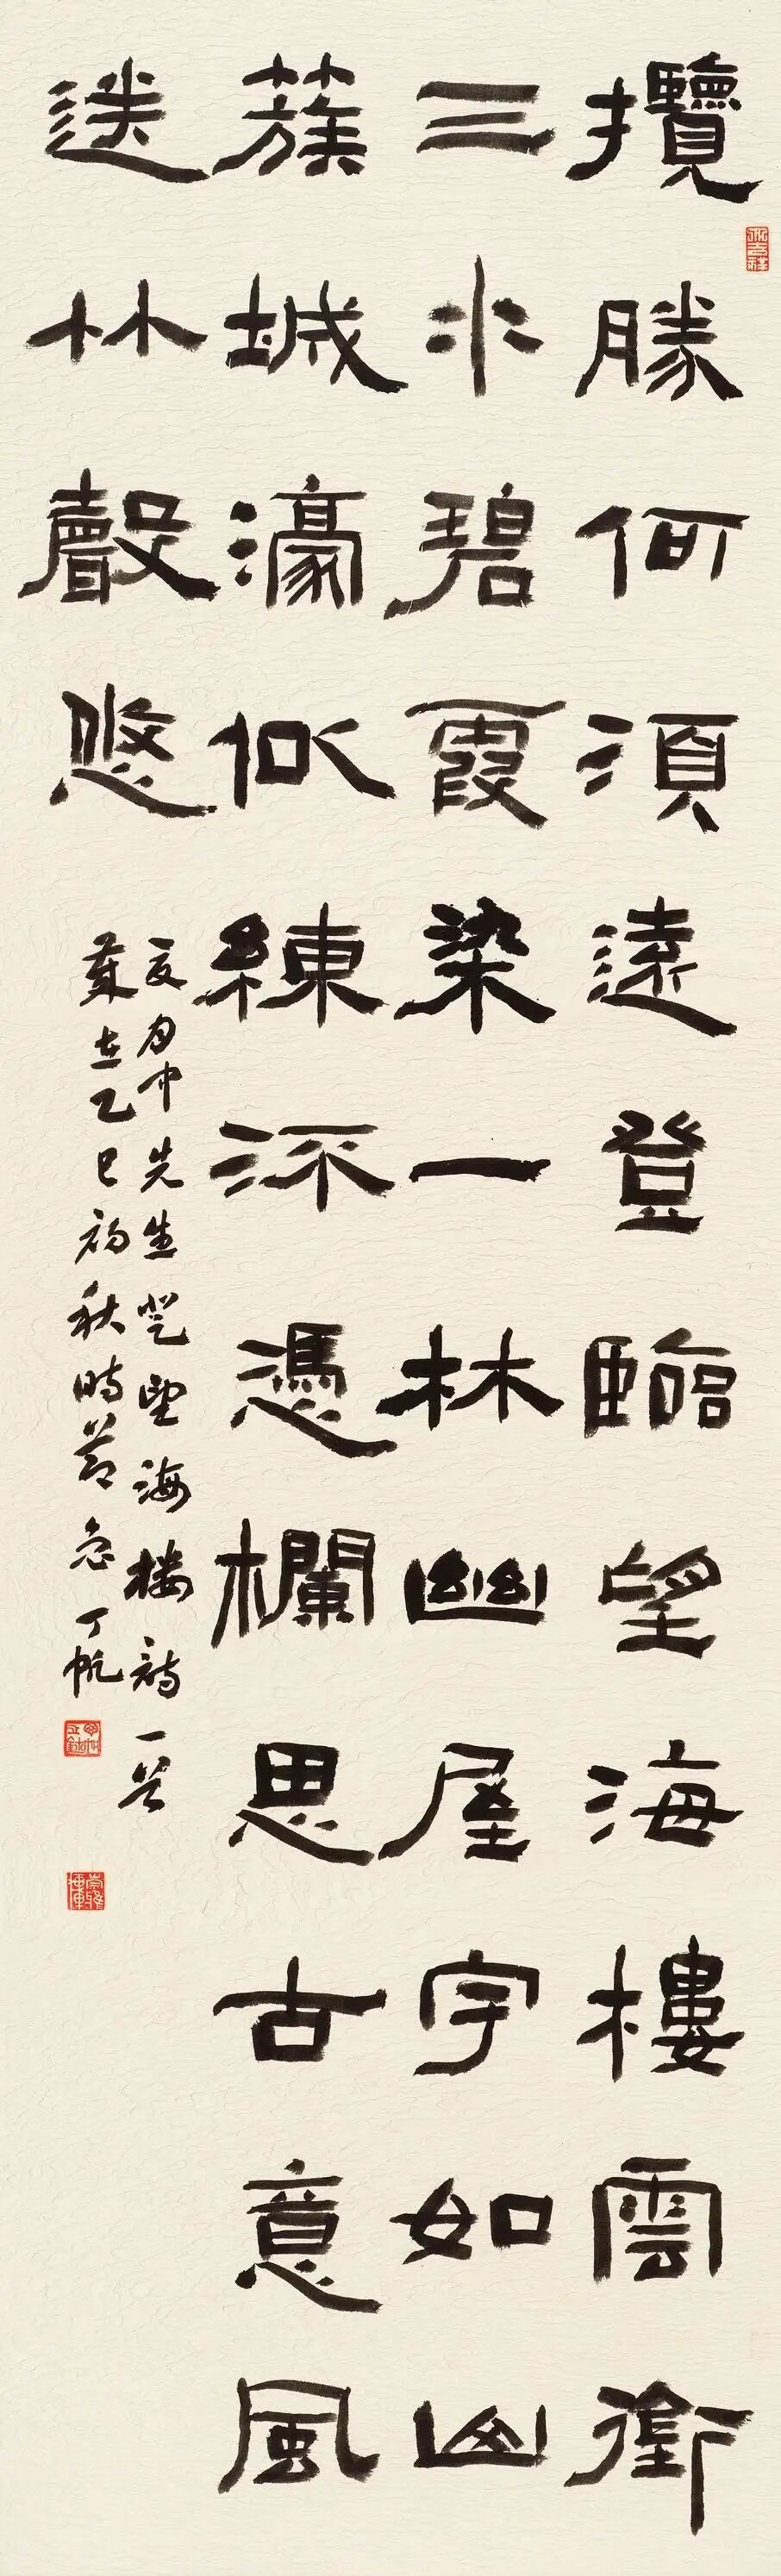 攬勝何須遠登臨望海樓雲銜
三水碧霞染一林幽屋宇如山
蔟城濠似練流憑欄思古意風
送竹聲悠
中先生登望海樓詩一首
歲在乙巳初秋時節丁帆